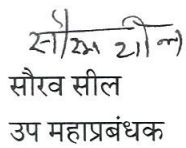 सौरभ शील
सौरव सील
उप महाप्रबंधक